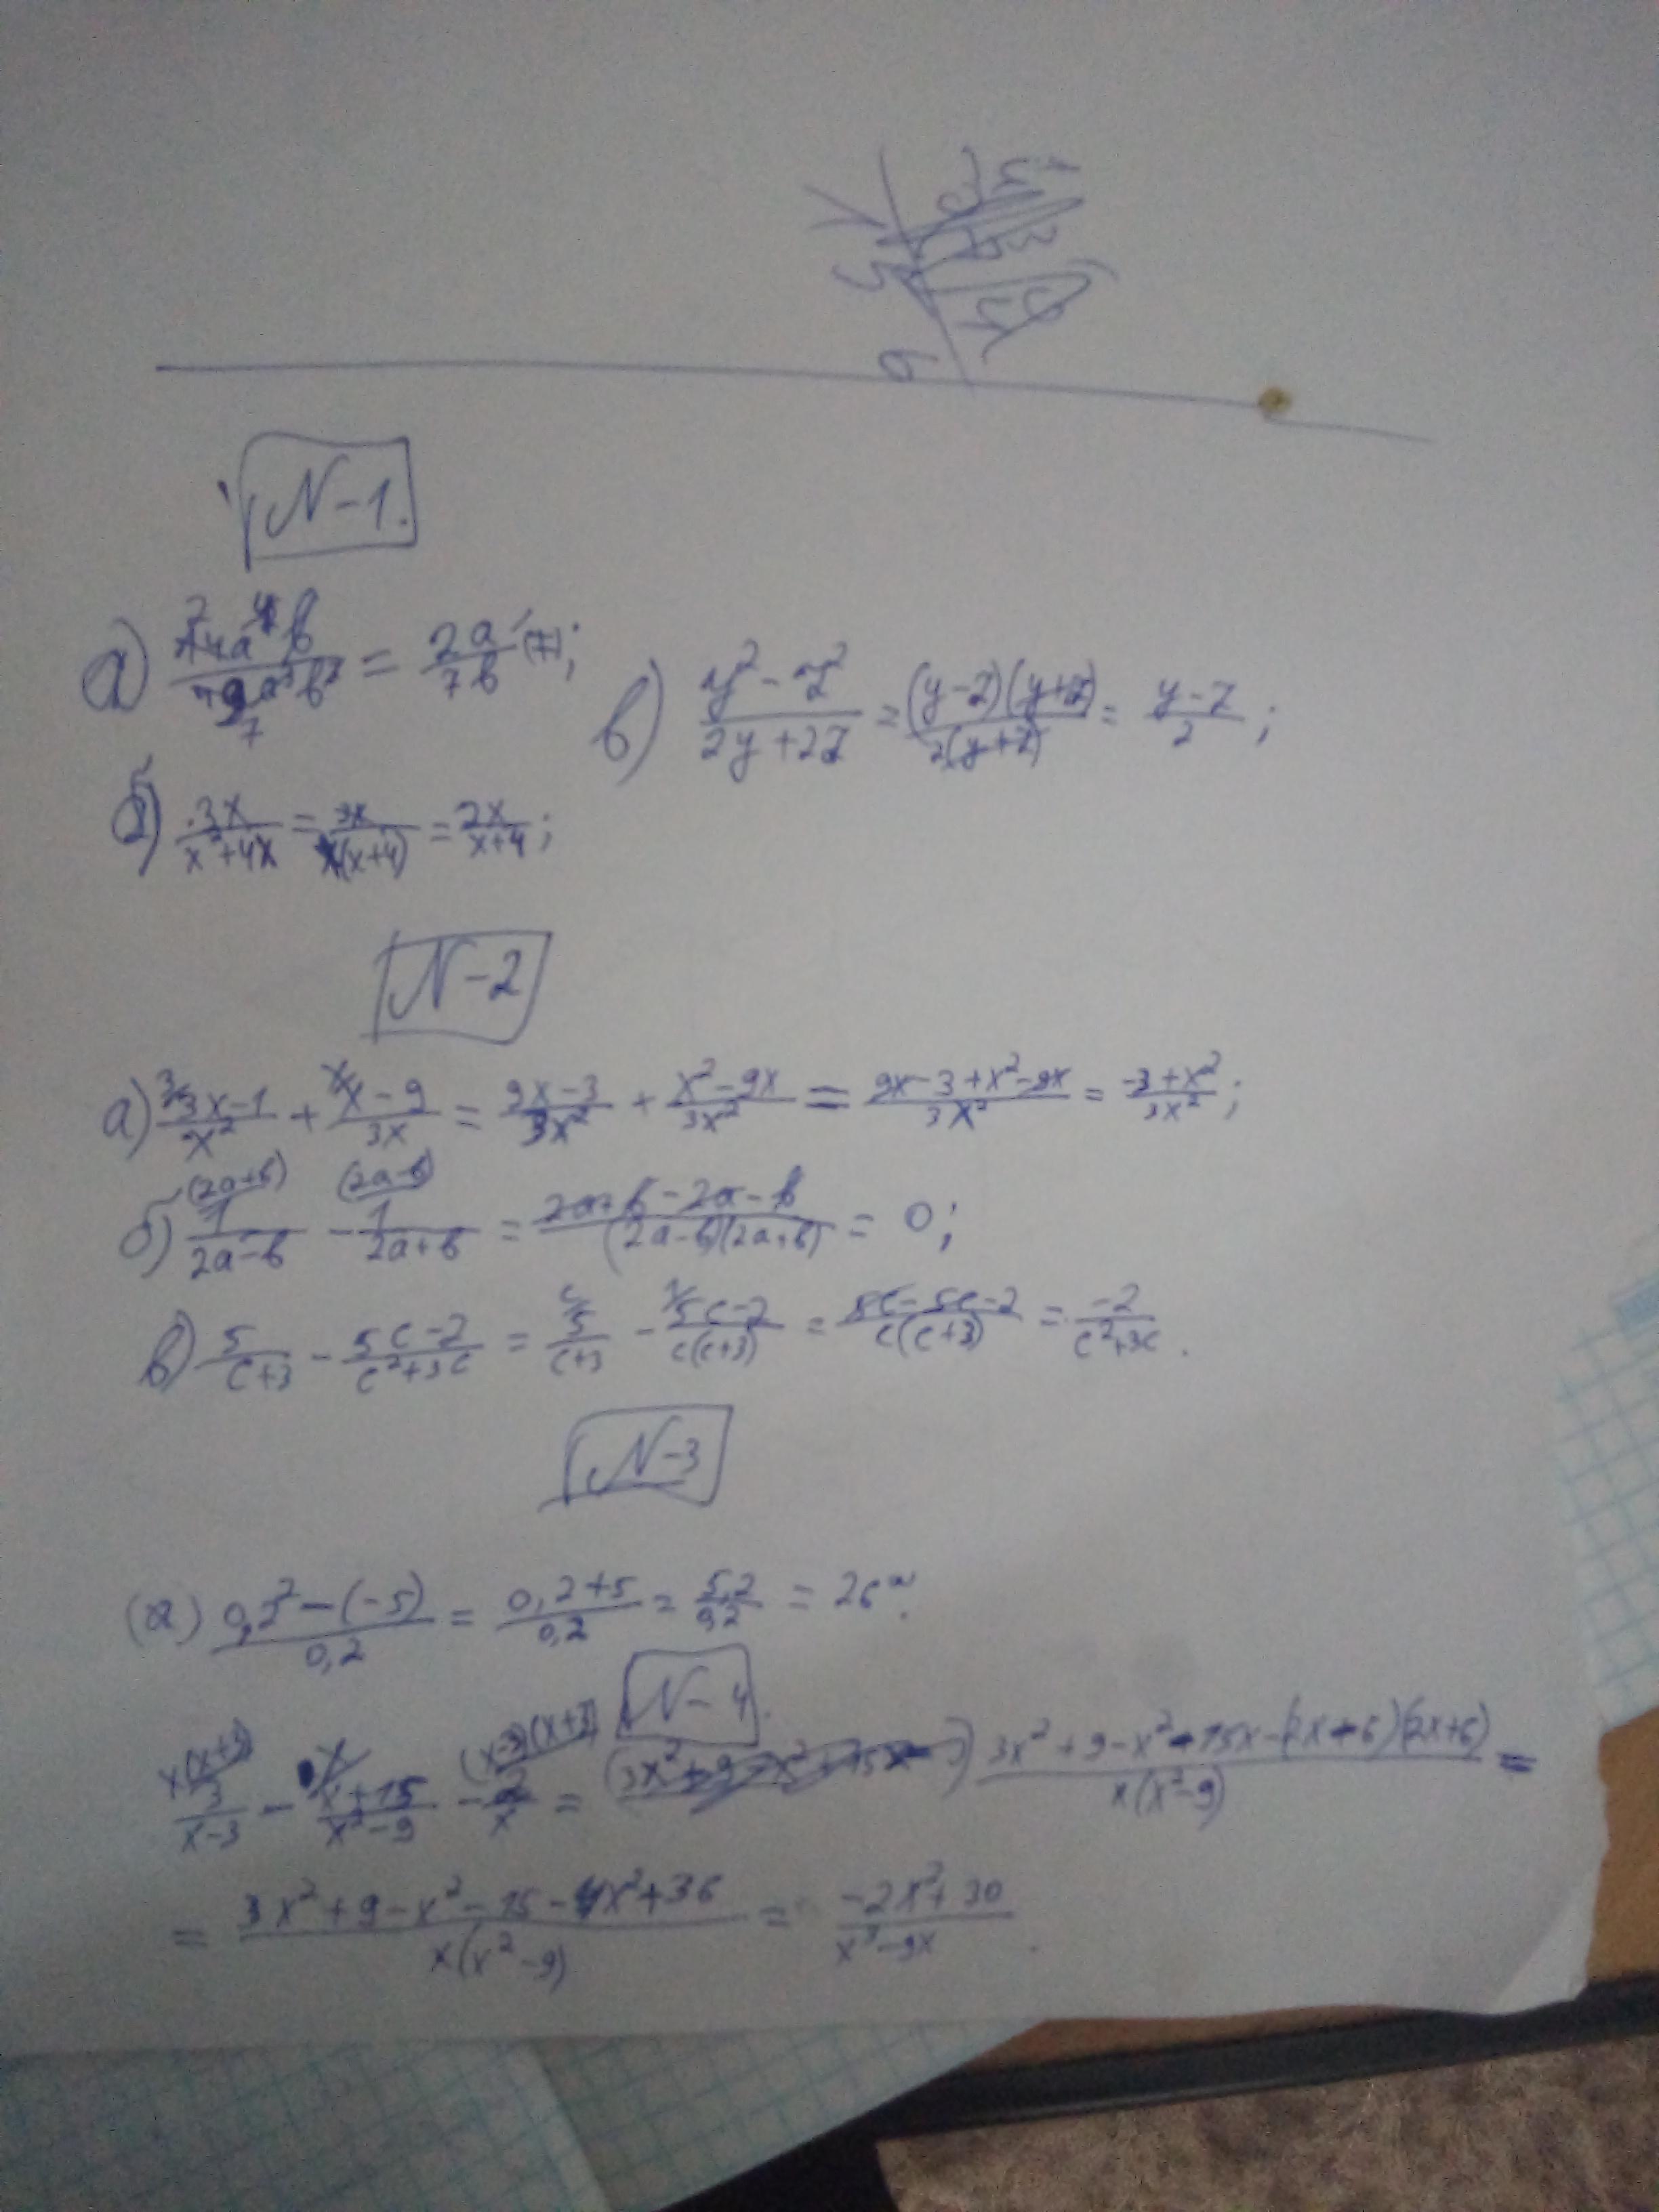 N-1.
а) 14a⁴b/49a³b² = 2a/7b;
в) y²-z²/2y+2z = (y-z)(y+z)/2(y+z) = y-z/2;
б) 3x/x²+4x = 3x/x(x+4) = 2x/x+4;
N-2
а) 3x-1/x² + x-9/3x = 9x-3/3x² + x²-9x/3x² = 9x-3+x²-9x/3x² = -3+x²/3x²;
б) (2a+b) 1/2a-b - (2a-b) 1/2a+b = 2a+b-2a-b/(2a-b)(2a+b) = 0;
в) 5/c+3 - 5c-2/c²+3c = 5/c+3 - 5c-2/c(c+3) = 5c-5c-2/c(c+3) = -2/c²+3c.
N-3
(а) 0,2²-(-5)/0,2 = 0,2+5/0,2 = 5,2/0,2 = 26
N-4.
x(x+3) 3/x-3 - x+15/x²-9 - (x-3)(x+3) 2/x = 3x²+9-x²-15x-(2x-6)(2x+6)/x(x²-9) =
= 3x²+9-x²-15-4x²+36/x(x²-9) = -2x²+30/x³-9x.